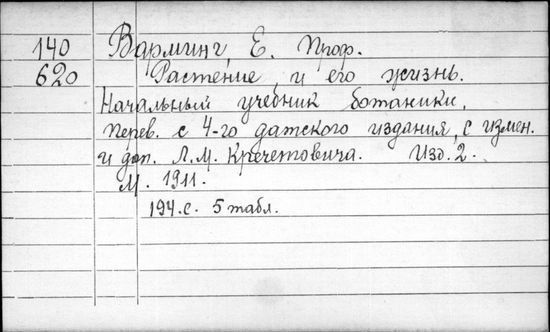 140 Варминг, Е. Проф.
620 Растение и его жизнь.
Начальный учебник ботаники,
перев. с 4-го датского издания, с измен.
и доп. Л. М. Кречетовича. Изд. 2.
М. 1911.
194.с. 5 табл.